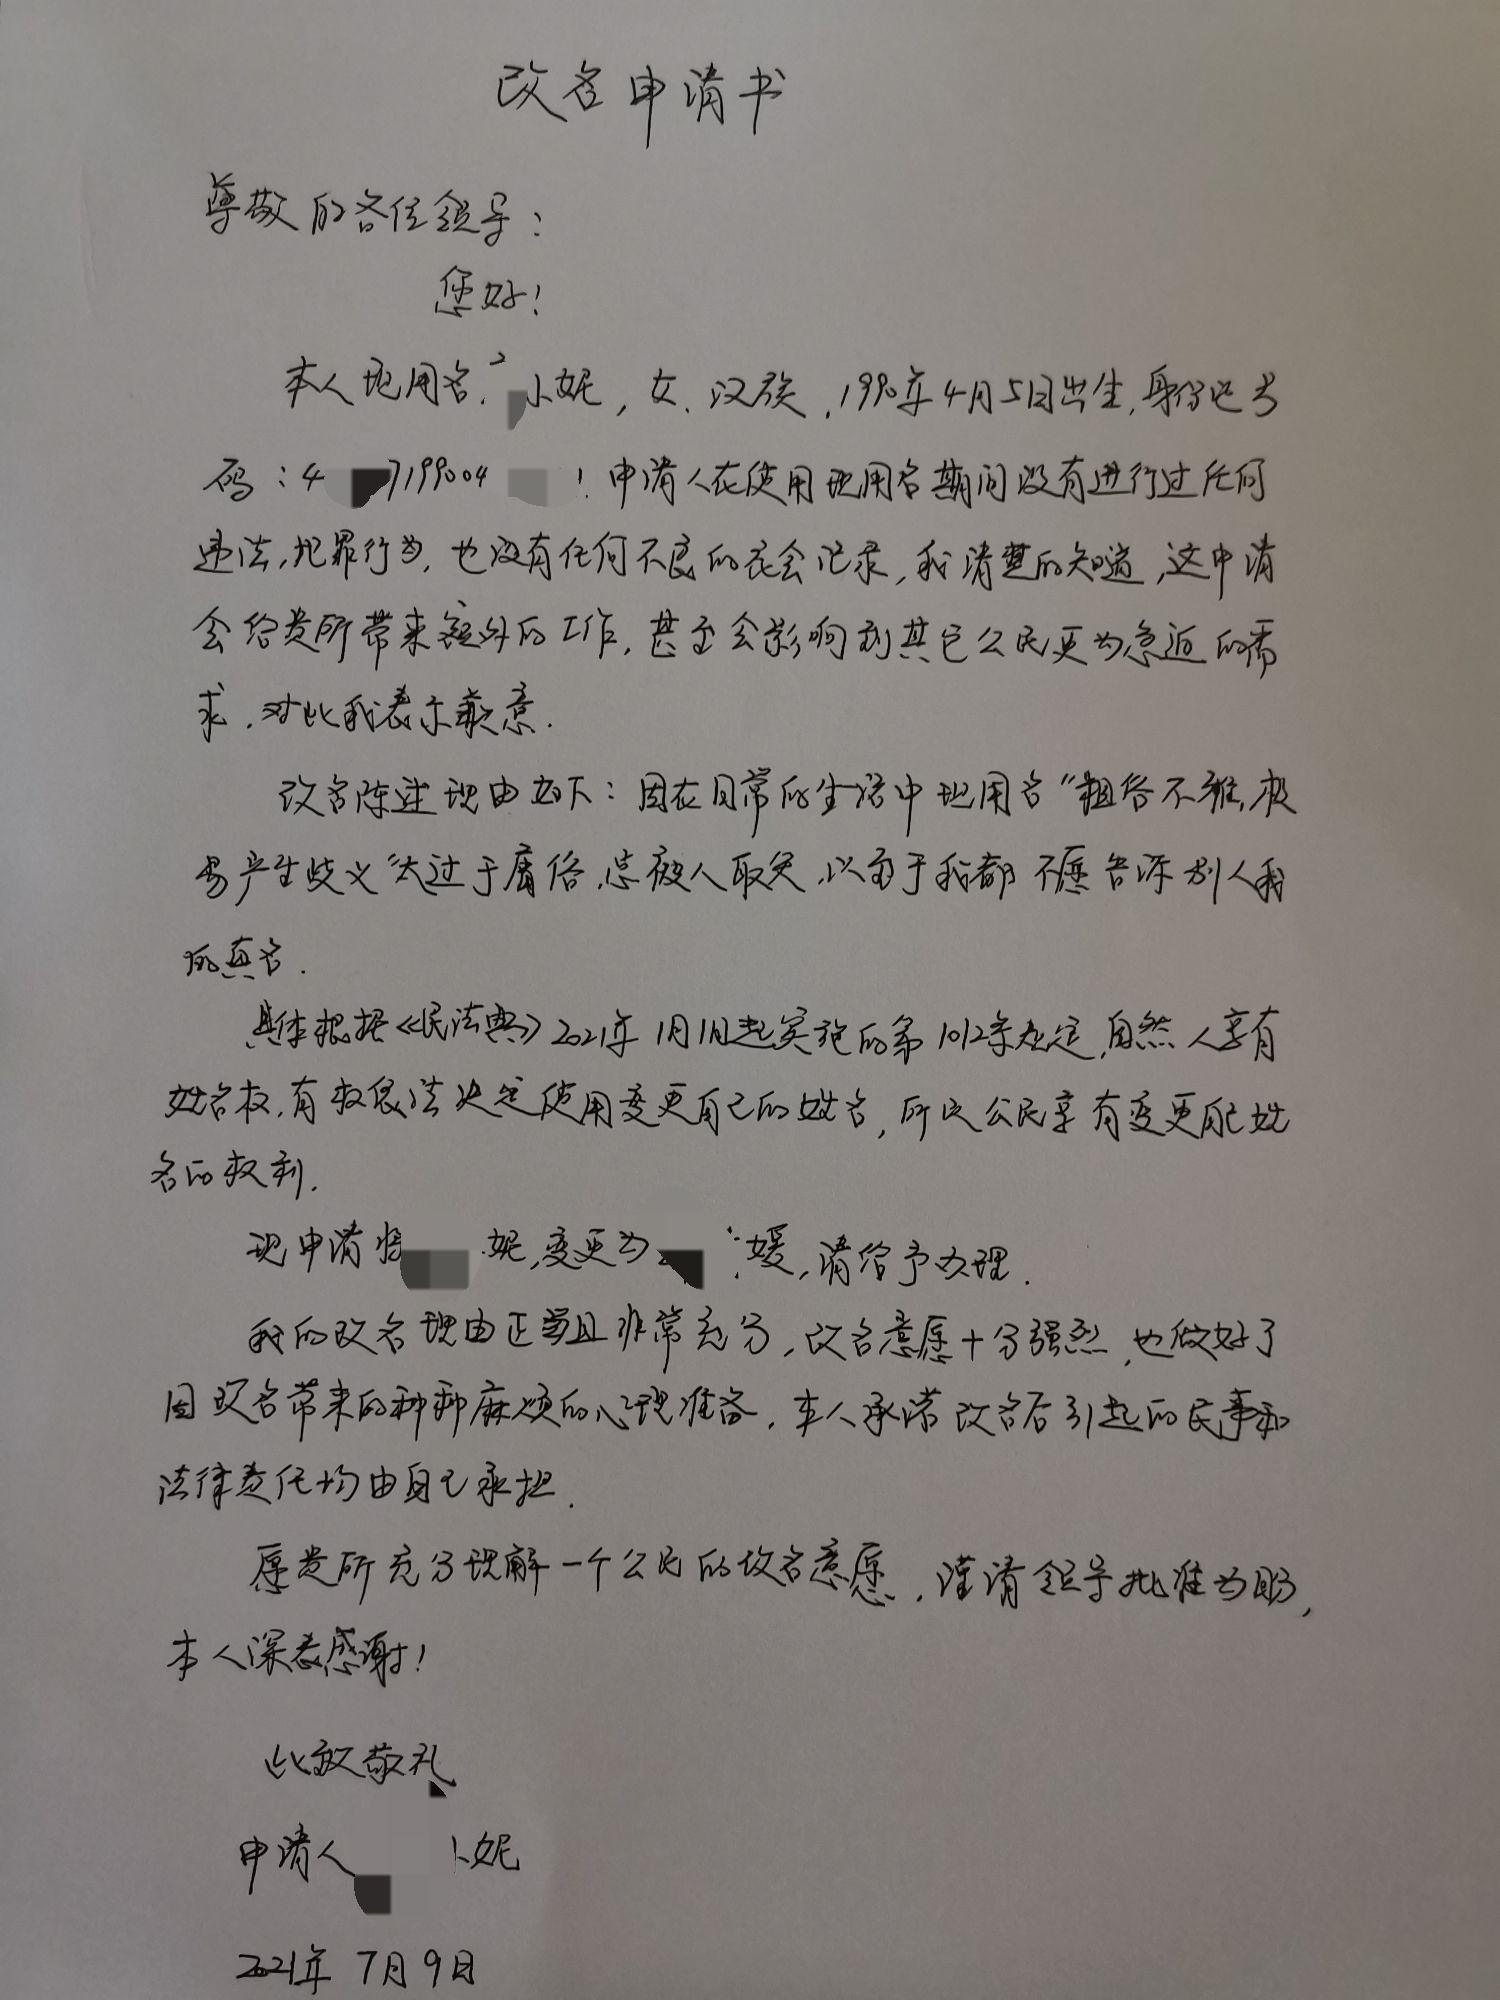 改名申请书
尊敬的各位领导:
您好!
本人现用名. 小妮,女.汉族,1990年4月5日出生,身份证号
码:4 7199004 !申请人在使用现用名期间没有进行过任何
违法,犯罪行为,也没有任何不良的社会记录,我清楚的知道,这申请
会给贵所带来额外的工作,甚至会影响到其它公民更为急迫的需
求,对此我表示歉意.
改名陈述理由如下:因在日常的生活中现用名"粗俗不雅,极
易产生歧义"太过于庸俗,总被人取笑,以至于我都不愿告诉别人我
的真名.
具体根据《民法典》2021年1月1日起实施的第1012条规定,自然人享有
姓名权,有权依法决定使用变更自己的姓名,所以公民享有变更自己姓
名的权利.
现申请将 妮,变更为 媛,请给予办理.
我的改名理由正当且非常充分,改名意愿十分强烈,也做好了
因改名带来的种种麻烦的心理准备,本人承诺改名后引起的民事和
法律责任均由自己承担.
愿贵所充分理解一个公民的改名意愿,谨请领导批准为盼,
本人深表感谢!
此致敬礼
申请人 妮
2021年7月9日